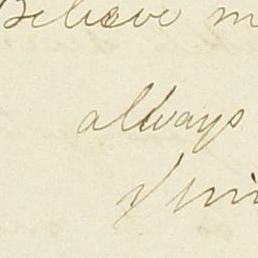 Believe m
always